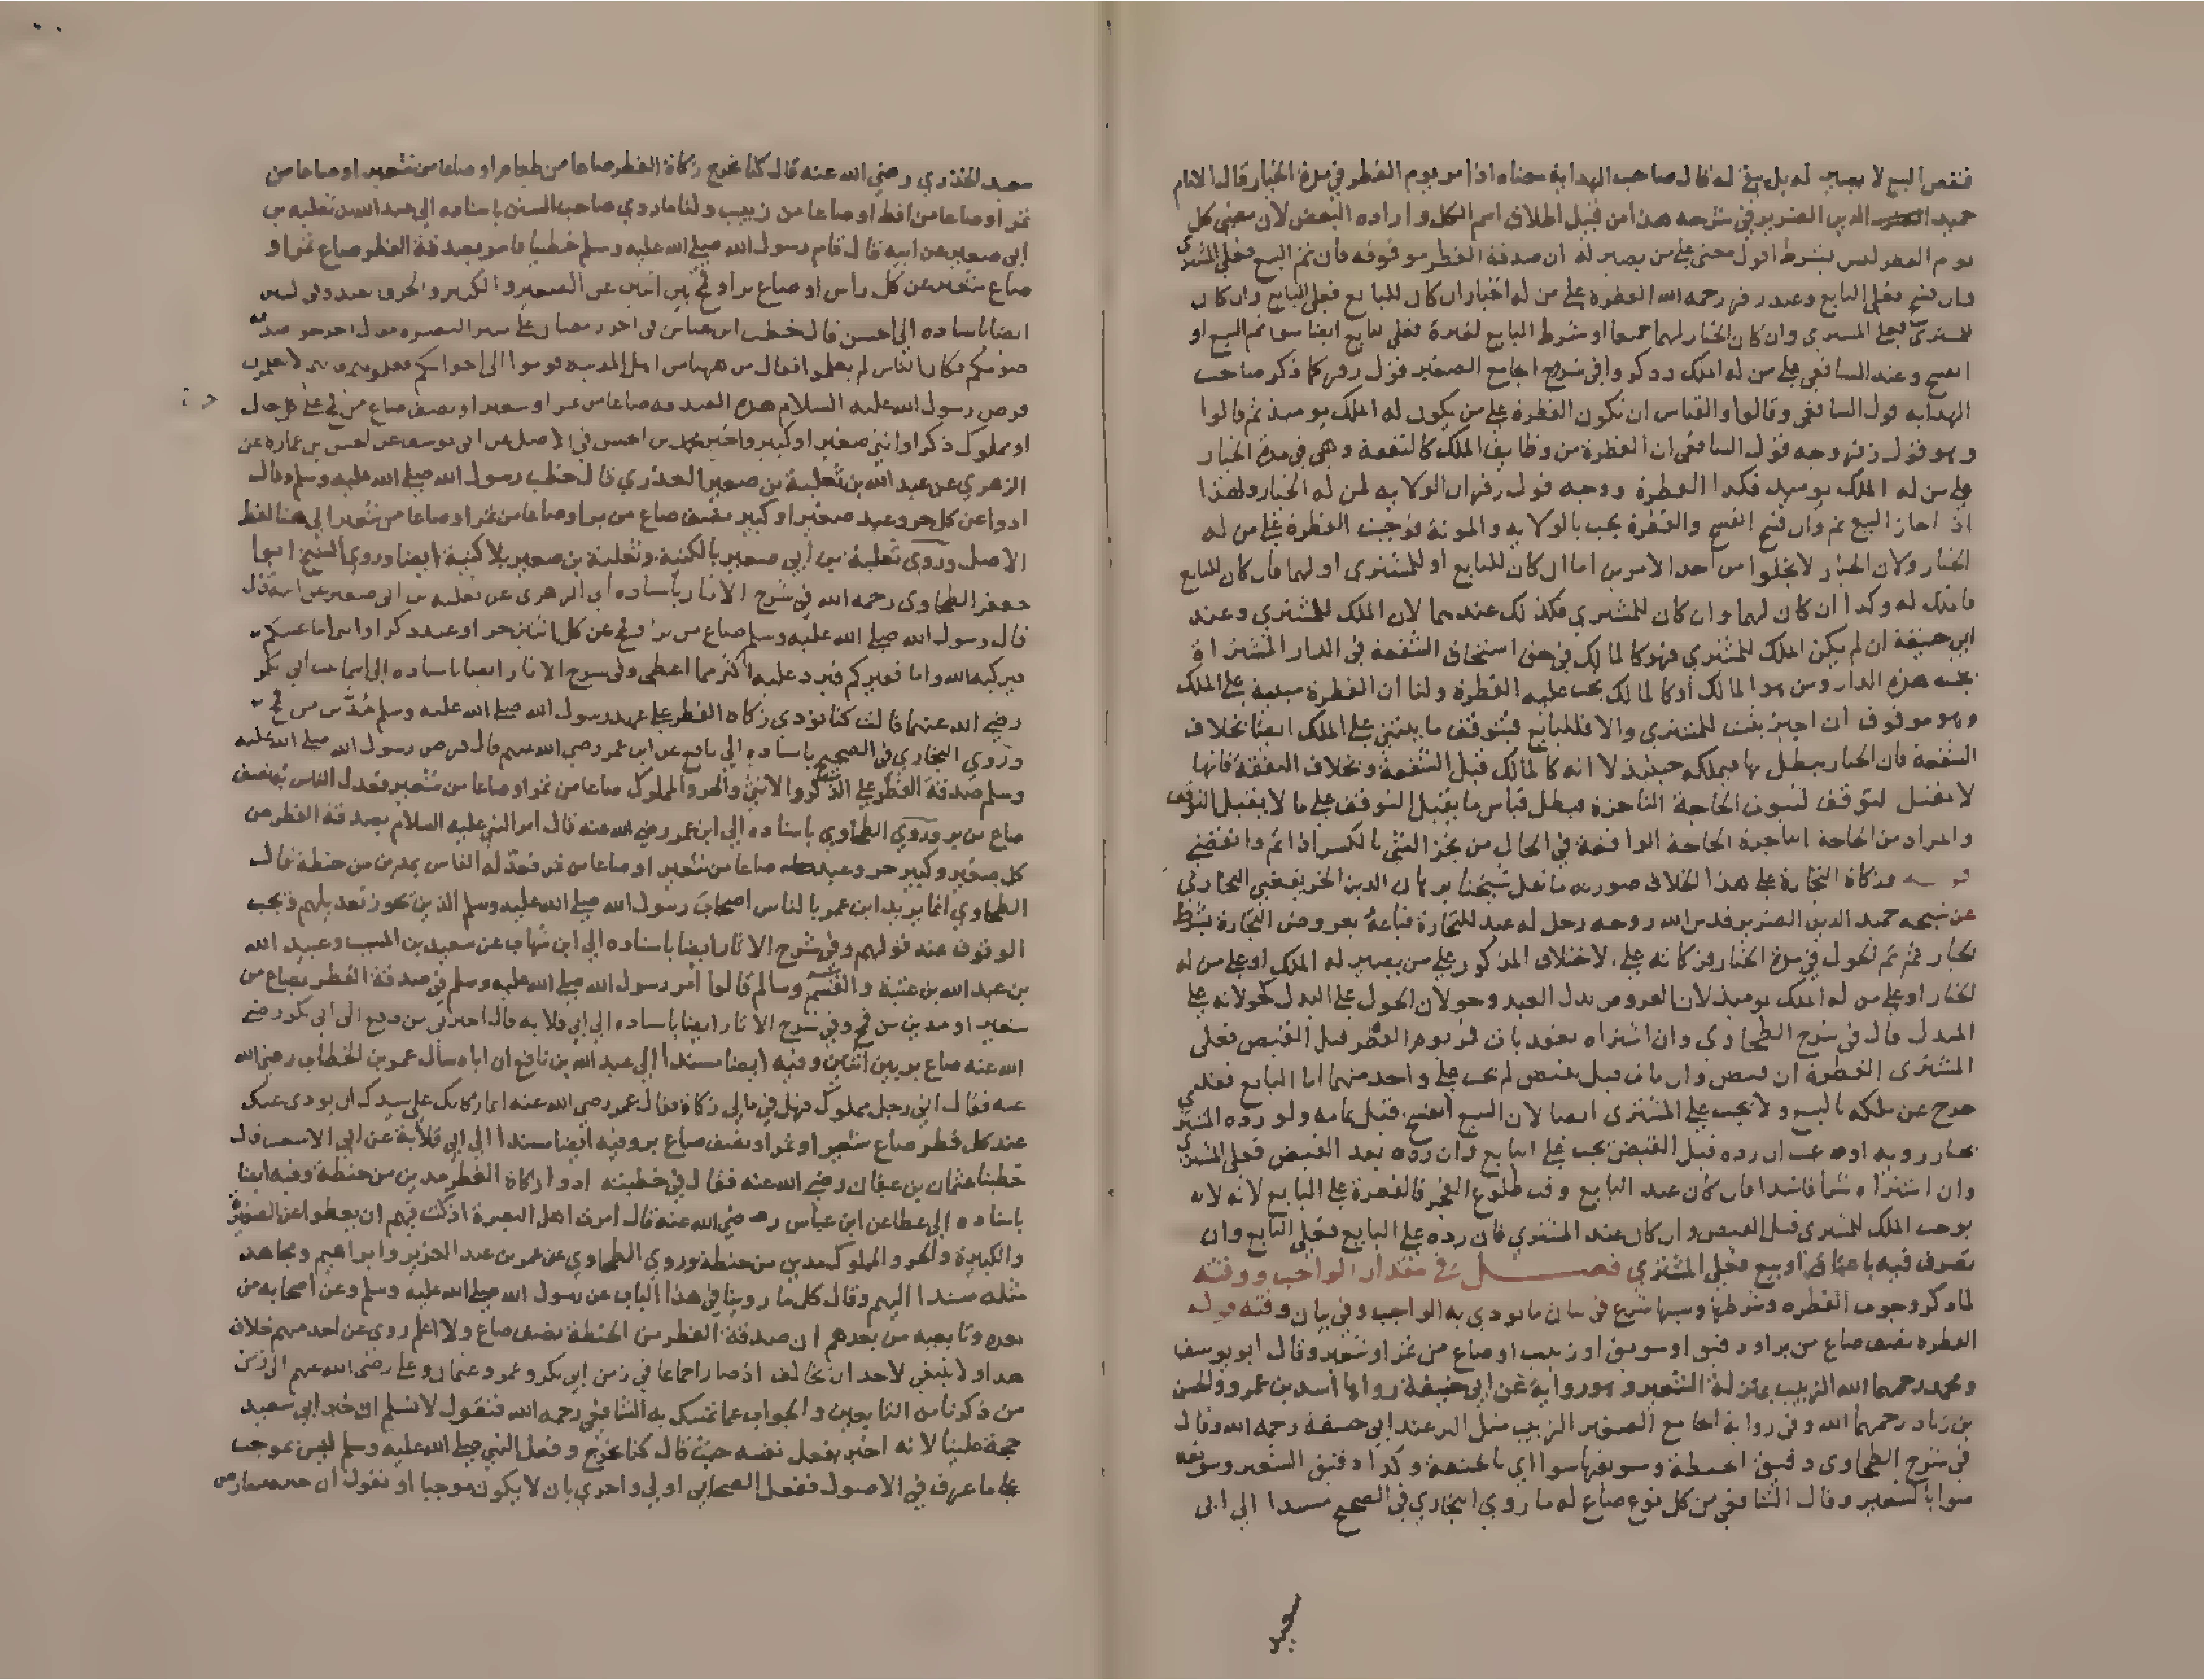 فنقض البيع لا يصير له بل يبقى له قال صاحب الهداية معناه اذا مر يوم الفطر في مدة الخيار قال الامام
حميد الدين الضرير في شرحه هذا من قبيل اطلاق اسم الكل وارادة البعض لان مضي كل
يوم الفطر ليس بشرط اقول معنى على من يصير له ان صدقة الفطر موقوفة فان تم البيع فعلى المشتري
وان فسخ فعلى البايع وعند زفر رحمه الله الفطرة على من له الخيار ان كان للبايع فعلى البايع وان كان
للمشتري فعلى المشتري وان كان الخيار لهما جميعا او شرط البايع لغيره فعلى البايع ايضا سوا تم البيع او
انفسخ وعند الشافعي على من له الملك وذكروا في شروح الجامع الصغير قول زفر كما ذكر صاحب
الهداية قول الشافعي وقالوا والقياس ان تكون الفطرة على من يكون له الملك يوميذ ثم قالوا
وهو قول زفر وجه قول الشافعي ان الفطرة من وظايف الملك كالنفقة وهي في مدة الخيار
على من له الملك يوميذ فكذا الفطرة ووجه قول زفر ان الولاية لمن له الخيار ولهذا
اذا اجاز البيع تم وان فسخ انفسخ والفطرة يجب بالولاية والمونة فوجبت الفطرة على من له
الخيار ولان الخيار لا يخلوا من احد الامرين اما ان كان للبايع او للمشتري او لهما فان كان للبايع
فالملك له وكذا ان كان لهما وان كان للمشتري فكذلك عندهما لان الملك للمشتري وعند
ابي حنيفة ان لم يكن الملك للمشتري فهو كالمالك في حق استحقاق الشفعة في الدار المشتراة
بجنب هذه الدار ومن هو المالك او كالمالك يجب عليه الفطرة ولنا ان الفطرة مبنية على الملك
وهو موقوف ان اجيز يثبت للمشتري والا فللبايع فيتوقف ما يبتني على الملك ايضا بخلاف
الشفعة فان الخيار يبطل بها فيملكه حينئذ لا انه كالمالك قبل الشفعة وبخلاف النفقة فانها
لا تقبل التوقف لثبوت الحاجة الناجزة فبطل قياس ما يقبل التوقف على ما لا يقبل التوقف
والمراد من الحاجة الناجزة الحاجة الواقعة في الحال من نجز الشي بالكسر اذا تم وانقضى
قوله وزكاة التجارة على هذا الخلاف صورته ما نقل شيخنا برهان الدين الخريفغني البخاري
عن شيخه حميد الدين الضرير قدس الله روحه رجل له عبد للتجارة فباعه بعروض التجارة بشرط
الخيار ثم تم الحول في مدة الخيار فزكاته على الاختلاف المذكور على من يصير له الملك او على من له
الخيار او على من له الملك يوميذ لان العروض بدل العبد وحولان الحول على البدل كحولانه على
المبدل قال في شرح الطحاوي وان اشتراه بعقد بات فمر يوم الفطر قبل القبض فعلى
المشتري الفطرة ان قبض وان مات قبل يقبض لم يجب على واحد منهما اما البايع فقد
خرج عن ملكه بالبيع ولا يجب على المشتري ايضا لان البيع انفسخ قبل تمامه ولو رده المشتري
بخيار روية او عيب ان رده قبل القبض يجب على البايع وان رده بعد القبض فعلى المشتري
وان اشتراه شرا فاسدا فان كان عند البايع وقت طلوع الفجر فالفطرة على البايع لانه لا
يوجب الملك للمشتري قبل القبض وان كان عند المشتري فان رده على البايع فعلى البايع وان
تصرف فيه باعتاق او بيع فعلى المشتري فصل في مقدار الواجب ووقته
لما ذكر وجوب الفطرة وشرطها وسببها شرع في بيان ما يودي به الواجب وفي بيان وقته قوله
الفطرة نصف صاع من بر او دقيق او سويق او زبيب او صاع من تمر او شعير وقال ابو يوسف
ومحمد رحمهما الله الزبيب بمنزلة الشعير وهو رواية عن ابي حنيفة رواها اسد بن عمرو والحسن
بن زياد رحمهما الله وفي رواية الجامع الصغير الزبيب مثل البر عند ابي حنيفة رحمه الله وقال
في شرح الطحاوي دقيق الحنطة وسويقها سوا اي بالحنطة وكذا دقيق الشعير وسويقه
سوا بالشعير وقال الشافعي من كل نوع صاع له ما روي البخاري في الصحيح مسندا الى ابي
سعيد
سعيد الخذري رضي الله عنه قال كنا نخرج زكاة الفطر صاعا من طعام او صاعا من شعير او صاعا من
تمر او صاعا من اقط او صاعا من زبيب ولنا ما روي صاحب السنن باسناده الى عبد الله بن ثعلبة بن
ابي صعير عن ابيه قال قام رسول الله صلى الله عليه وسلم خطيبا فامر بصدقة الفطر صاع تمر او
صاع شعير عن كل راس او صاع بر او قمح بين اثنين عن الصغير والكبير والحر والعبد وفي السنن
ايضا باسناده الى الحسن قال خطب ابن عباس في اخر رمضان على منبر البصرة فقال اخرجوا صدقة
صومكم فكان الناس لم يعلموا فقال من ههنا من اهل المدينة قوموا الى اخوانكم فعلموهم فانهم لا يعلمون
فرض رسول الله عليه السلام هذه الصدقة صاعا من تمر او شعير او نصف صاع من قمح على كل حال
او مملوك ذكر او انثى صغير او كبير واخبر محمد بن الحسن في الاصل عن ابي يوسف عن الحسن بن عمارة عن
الزهري عن عبد الله بن ثعلبة بن صعير العذري قال خطب رسول الله صلى الله عليه وسلم وقال
ادوا عن كل حر وعبد صغير او كبير نصف صاع من بر او صاعا من تمر او صاعا من شعير الى هنا لفظ
الاصل وروي ثعلبة بن ابي صعير بالكنية وثعلبة بن صعير بلا كنية ايضا وروي الشيخ ابوا
جعفر الطحاوي رحمه الله في شرح الاثار باسناده الى الزهري عن ثعلبة بن ابي صعير عن ابيه قال
قال رسول الله صلى الله عليه وسلم صاع من بر او قمح عن كل اثنين حر او عبد ذكر او انثى اما غنيكم
فيزكيه الله واما فقيركم فيرد عليه اكثر مما اعطى وفي شرح الاثار ايضا باسناده الى اسما بنت ابي بكر
رضي الله عنهما قالت كنا نؤدي زكاة الفطر على عهد رسول الله صلى الله عليه وسلم مدين من قمح
وروي البخاري في الصحيح باسناده الى نافع عن ابن عمر رضي الله عنهم قال فرض رسول الله صلى الله عليه
وسلم صدقة الفطر على الذكر والانثى والحر والمملوك صاعا من تمر او صاعا من شعير فعدل الناس به نصف
صاع من بر وروي الطحاوي باسناده الى ابن عمر رضي الله عنه قال امر النبي عليه السلام بصدقة الفطر عن
كل صغير وكبير حر وعبد صاعا من شعير او صاعا من تمر فعدله الناس بمدين من حنطة قال
الطحاوي انما يريد ابن عمر بالناس اصحاب رسول الله صلى الله عليه وسلم الذين يجوز تعديلهم ويجب
الوقوف عند قولهم وفي شرح الاثار ايضا باسناده الى ابن شهاب عن سعيد بن المسيب وعبيد الله
بن عبد الله بن عتبة والقسم وسالم قالوا امر رسول الله صلى الله عليه وسلم في صدقة الفطر بصاع من
شعير او مدين من قمح وفي شرح الاثار ايضا باسناده الى ابي قلابة قال اخبرني من دفع الى ابي بكر رضي
الله عنه صاع بر بين اثنين وفيه ايضا مسندا الى عبد الله بن نافع ان اباه سأل عمر بن الخطاب رضي الله
عنه فقال اني رجل مملوك فهل في مالي زكاة فقال عمر رضي الله عنه انما زكاتك على سيدك ان يودي عنك
عند كل فطر صاع شعير او تمر او نصف صاع بر وفيه ايضا مسندا الى ابي قلابة عن ابي الاشعث قال
خطبنا عثمان بن عفان رضي الله عنه فقال في خطبته ادوا زكاة الفطر مدين من حنطة وفيه ايضا
باسناده الى عطا عن ابن عباس رضي الله عنه قال امرت اهل البصرة اذ كنت فيهم ان يعطوا عن الصغير
والكبير والحر والمملوك مدين من حنطة وروي الطحاوي عن عمر بن عبد العزيز وابراهيم ومجاهد
مثله مسندا اليهم وقال كل ما روينا في هذا الباب عن رسول الله صلى الله عليه وسلم وعن اصحابه من
بعده وتابعيه من بعدهم ان صدقة الفطر من الحنطة نصف صاع ولا اعلم روى عن احد منهم خلاف
هذا ولا ينبغي لاحد ان يخالف اذ صار اجماعا في زمن ابي بكر وعمر وعثمان وعلي رضي الله عنهم الى زمن
من ذكرنا من التابعين والجواب عما تمسك به الشافعي رحمه الله فنقول لا نسلم ان خبر ابي سعيد
حجة علينا لانه اخبر بفعل نفسه حيث قال كنا نخرج وفعل النبي صلى الله عليه وسلم ليس بموجب
على ما عرف في الاصول ففعل الصحابي اولى واحرى بان لا يكون موجبا او نقول ان